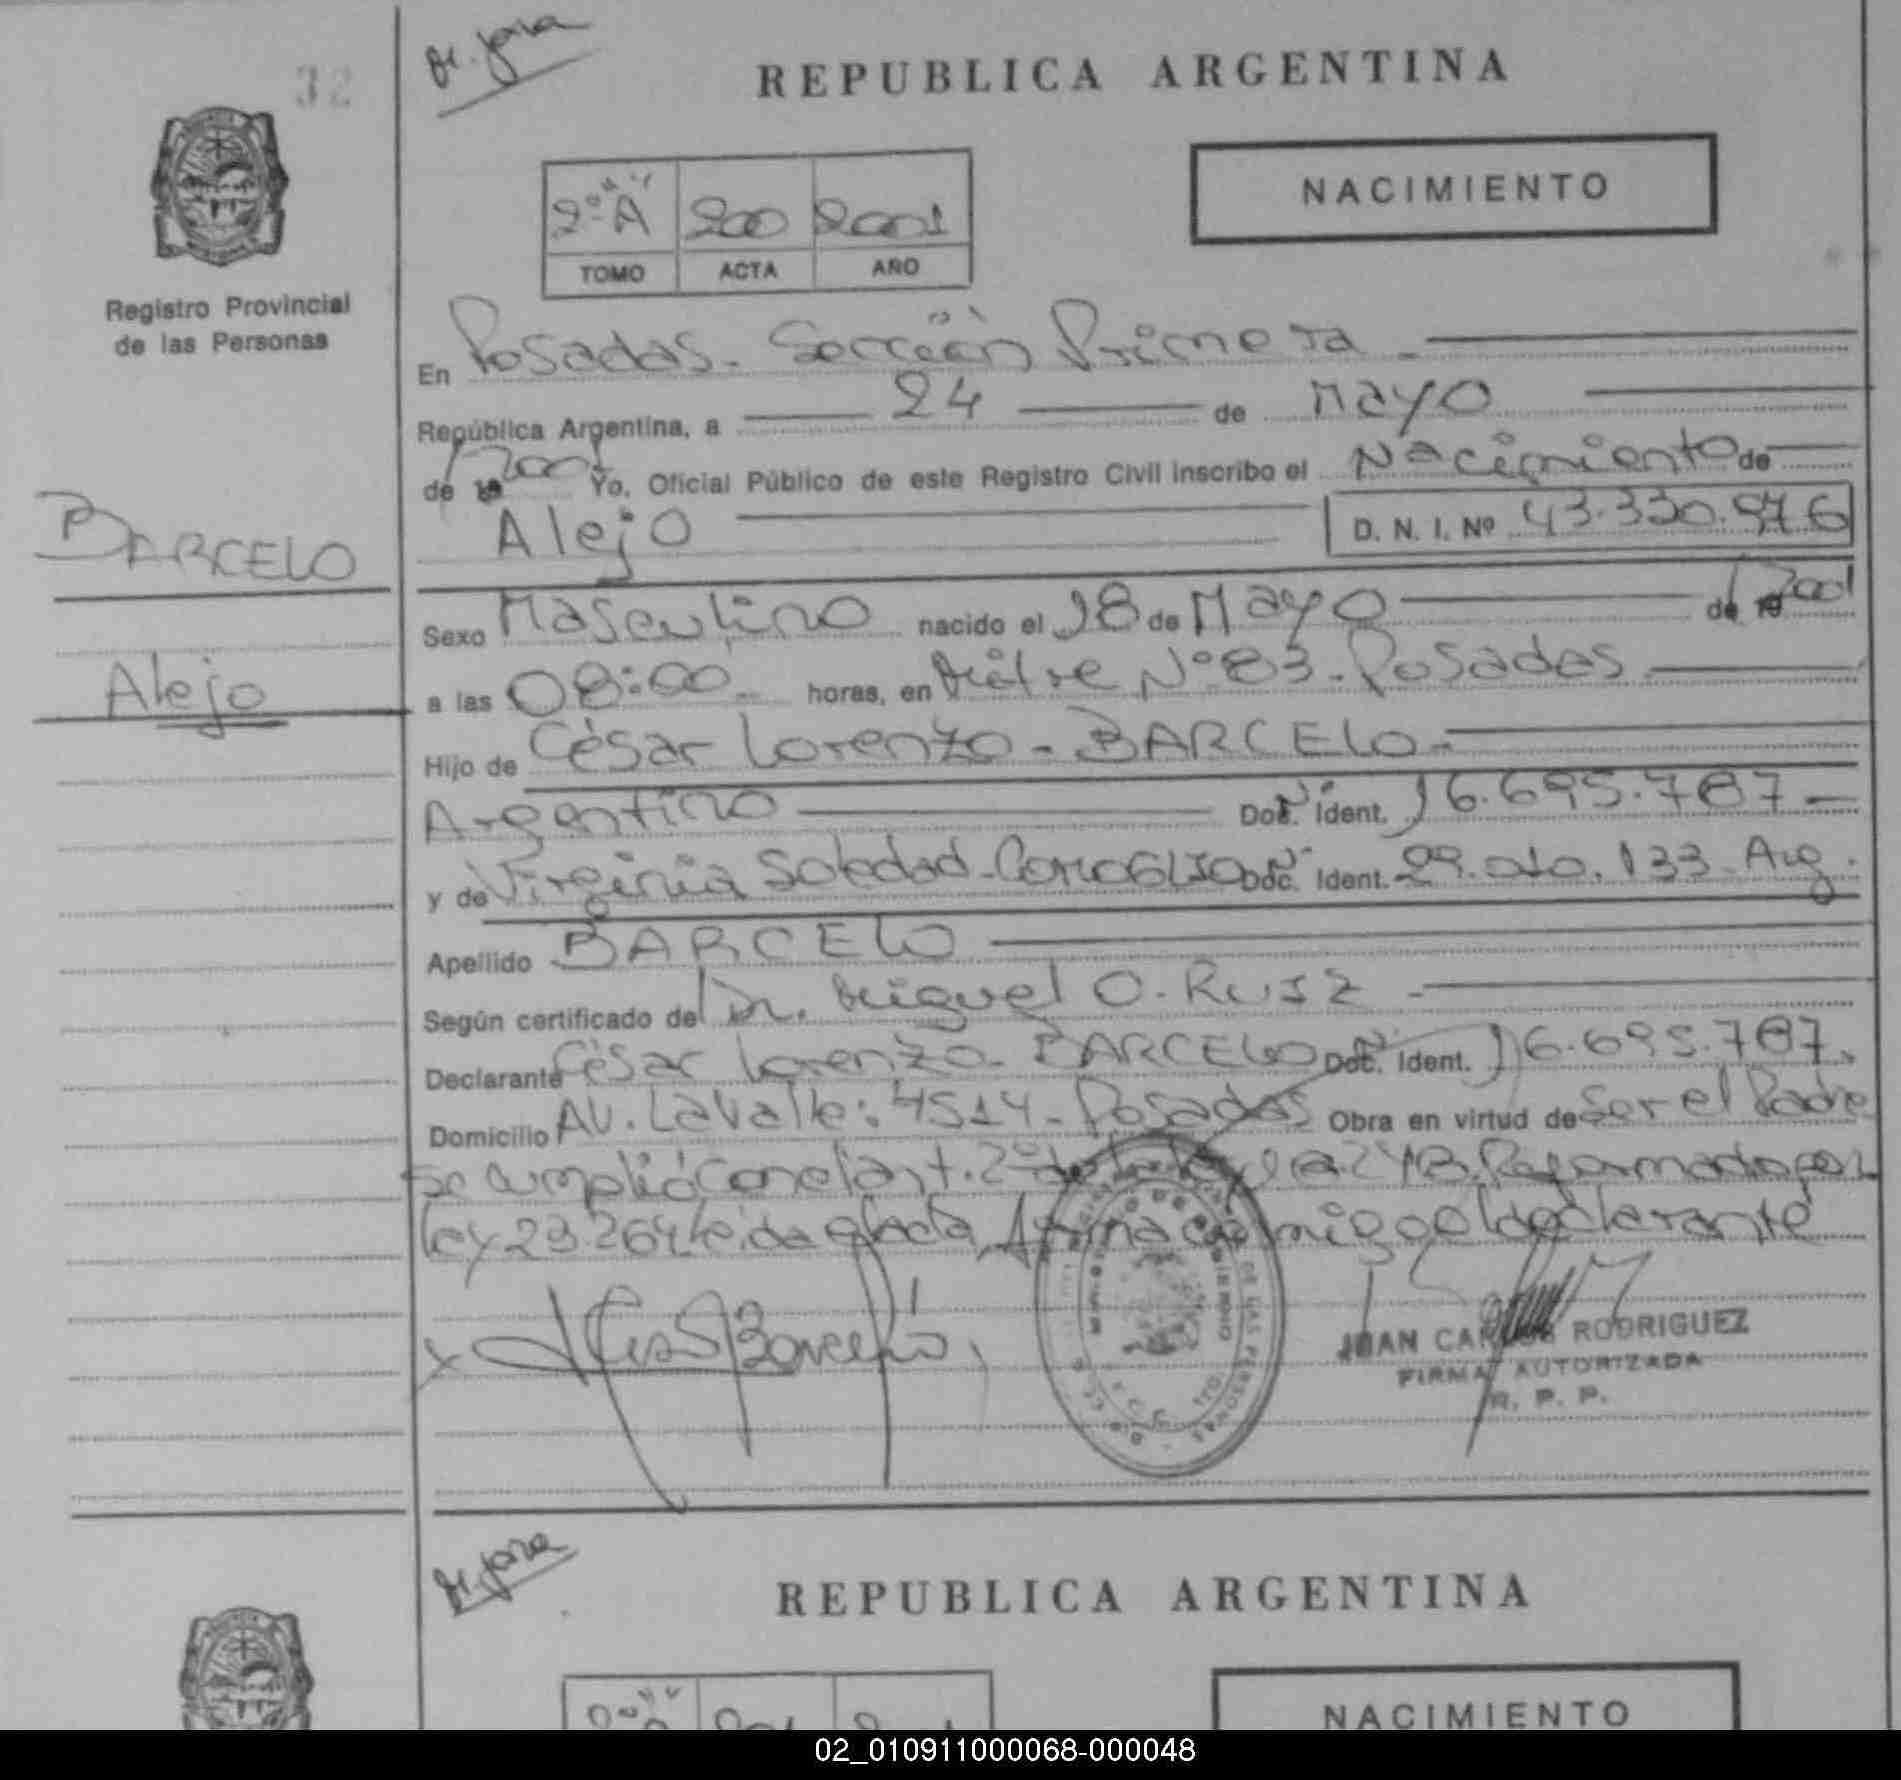 32
REPUBLICA ARGENTINA
NACIMIENTO
2º A 200 2001
TOMO ACTA AÑO
Registro Provincial
de las Personas
En Posadas - Sección Primera
República Argentina, a 24 de Mayo
de 19 2001 Yo, Oficial Público de este Registro Civil inscribo el Nacimiento de
Alejo D. N. I. Nº 43.330.976
BARCELO
Alejo
Sexo Masculino nacido el 18 de Mayo de 19 2001
a las 08:00 horas, en Mitre Nº 83 - Posadas
Hijo de César Lorenzo - BARCELO -
Argentino Doc. Ident. 16.695.787
y de Virginia Soledad - COMOGLIO Doc. Ident. 29.010.133 - Arg.
Apellido BARCELO
Según certificado del Dr. Miguel O. Ruiz
Declarante César Lorenzo - BARCELO Doc. Ident. 16.695.787
Domicilio AV. Lavalle: 4514 - Posadas Obra en virtud de Ser el Padre
Se cumplió con el art. 2º de la Ley Reformada por
Ley 23.264. Leida el acta, firma conmigo el declarante
JUAN CARLOS RODRIGUEZ
FIRMA AUTORIZADA
R. P. P.
REPUBLICA ARGENTINA
NACIMIENTO
02_010911000068-000048